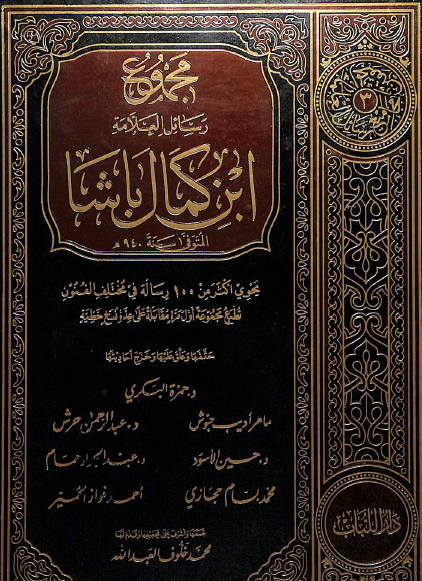 مجموع
رسائل العلامة
ابن كمال باشا
المتوفى سنة ٩٤٠ هـ
يحوي أكثر من ١٠٠ رسالة في مختلف الفنون
تطبع مجموعة أول مرة مقابلة على عدة نسخ خطية
حققها وعلق عليها وخرج أحاديثها
د. حمزة البكري
ماهر أديب حبوش د. عبد الرحمن حرش
د. حسين الأسود د. عبد الجواد حمام
محمد بسام حجازي أحمد فواز الحمير
جمعها وأشرف على تحقيقها وقدم لها
محمد خلوف العبد الله
٣
دار اللباب